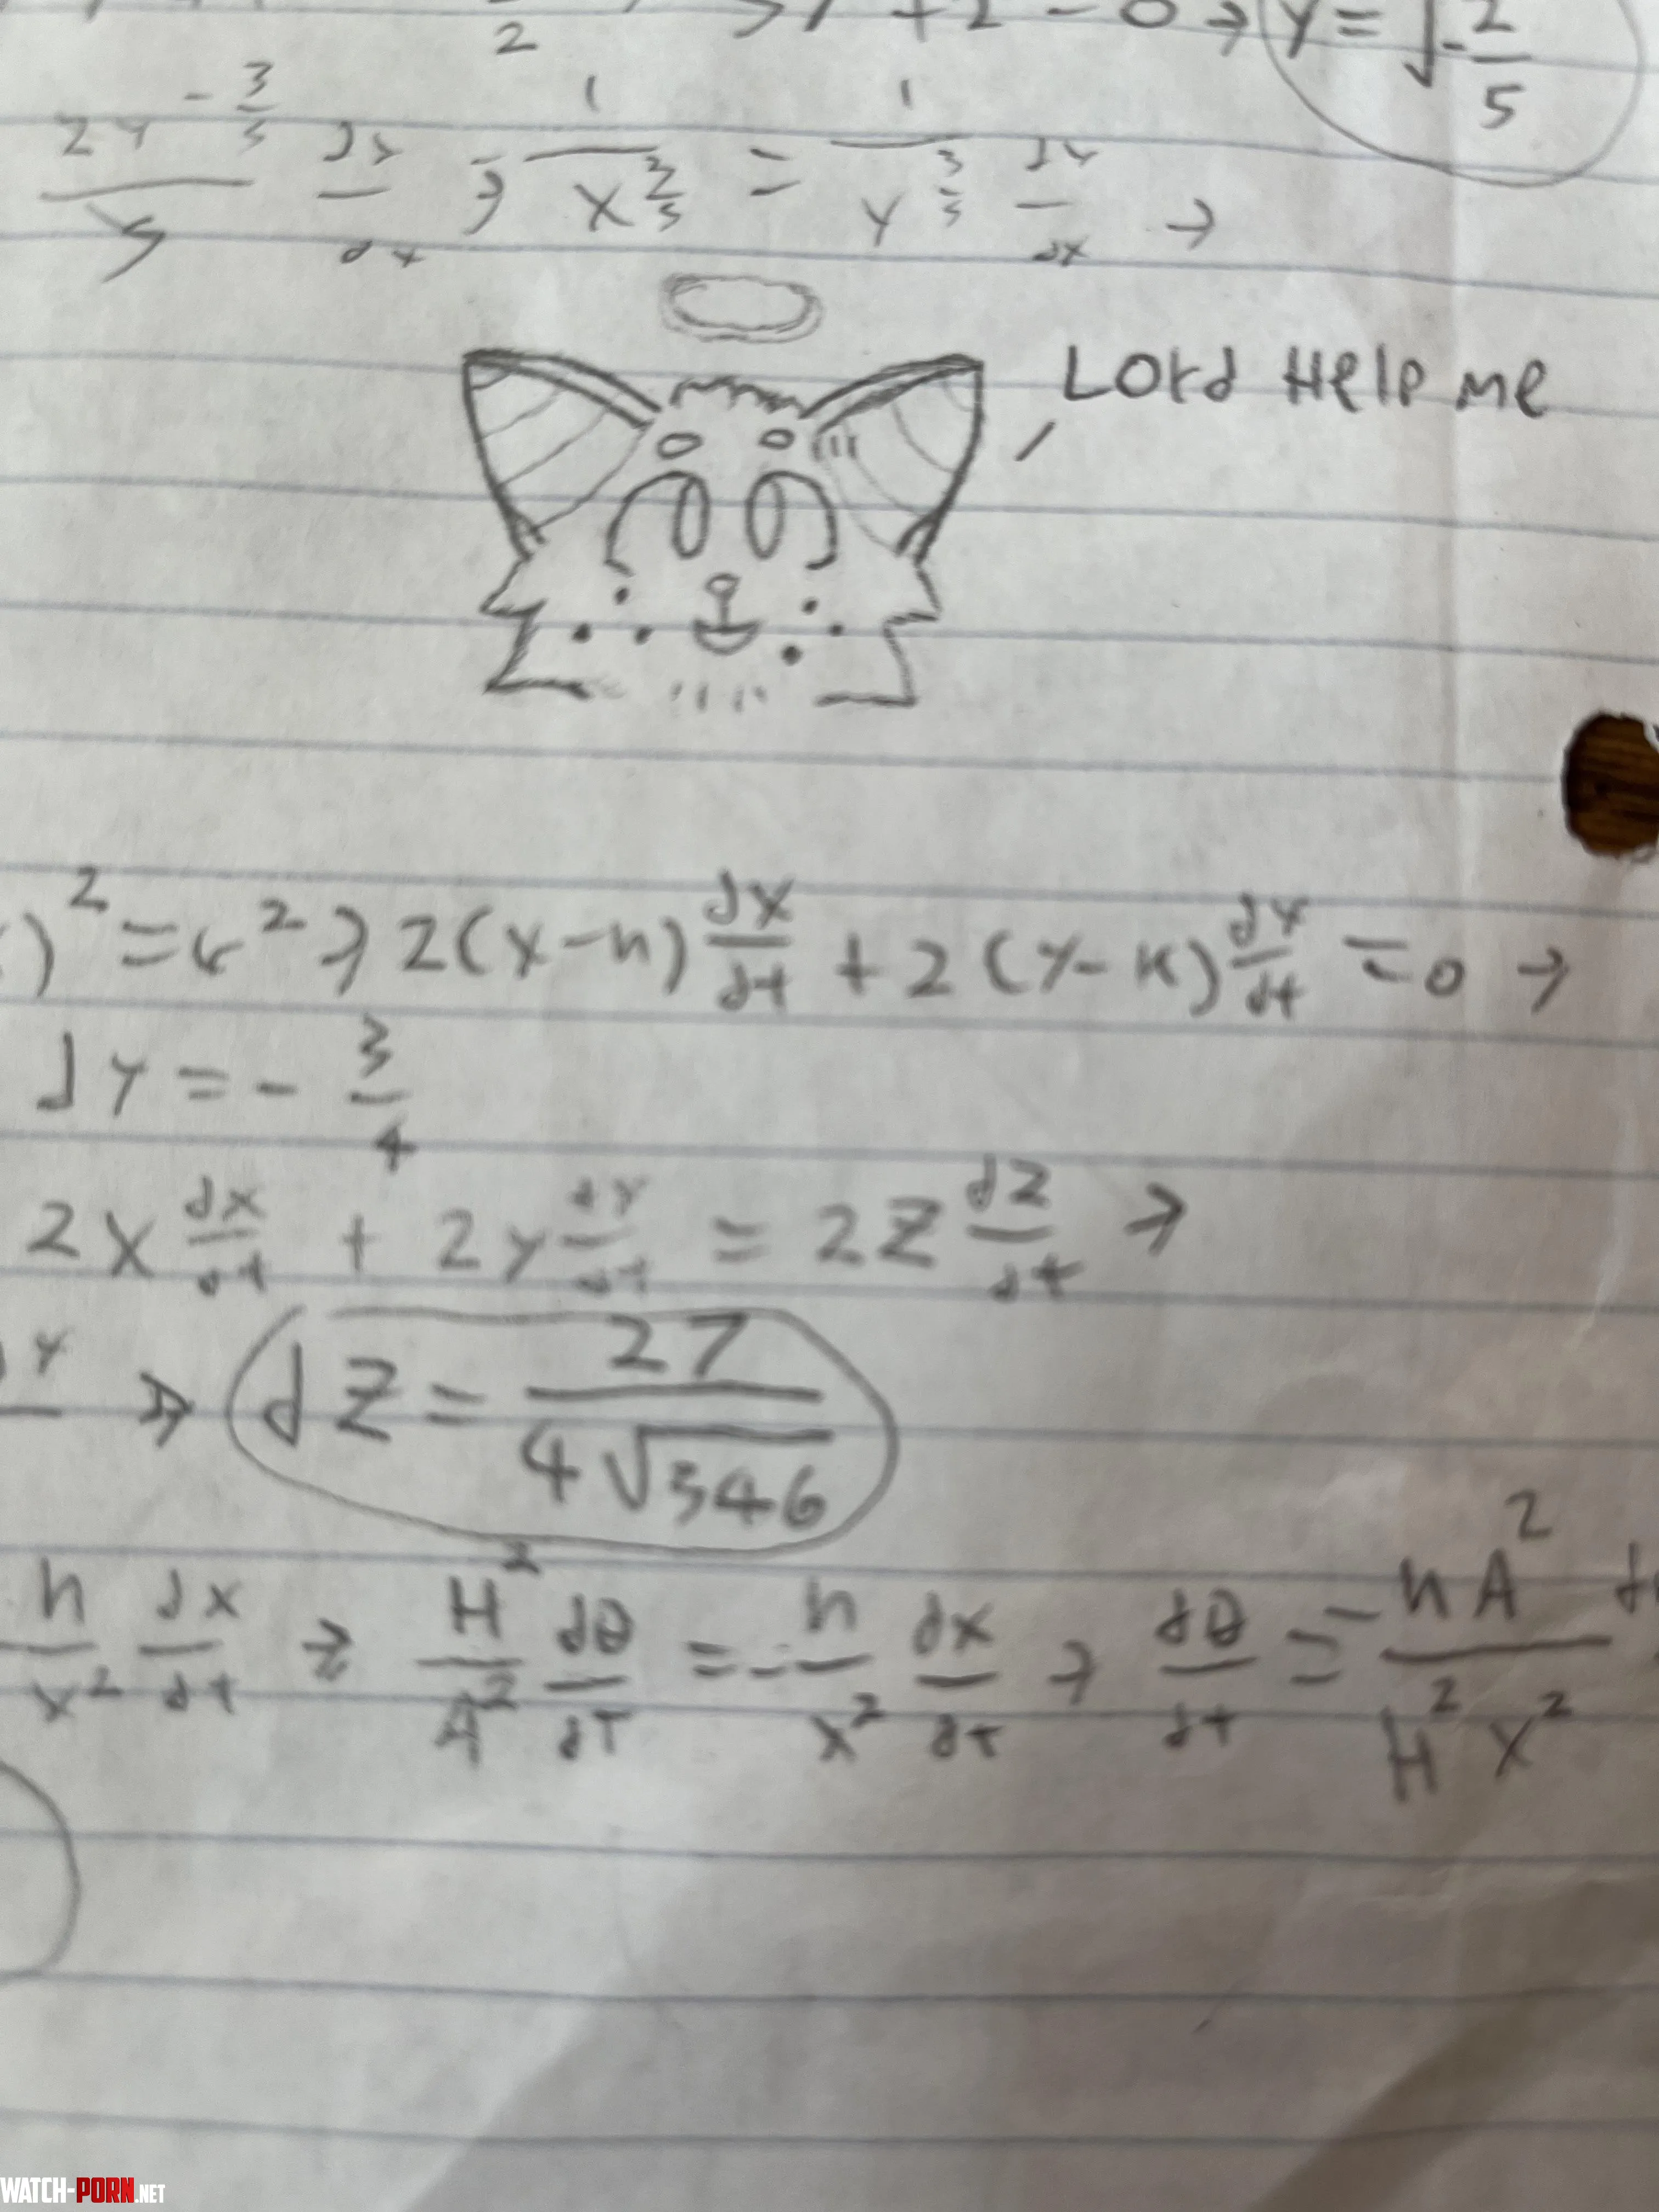 2
+ 2 = 0 → y = √-2/5
2y^-3/5 / 5 dy/dx ; -1/x^3/5 = 1/y^3/5 dy/dx →
Lord Help me
)² = r² → 2(x-h) dx/dt + 2(y-k) dy/dt = 0 →
dy = -3/4
2x dx/dt + 2y dy/dt = 2z dz/dt →
y → dz = 27/4√346
h/x² dx/dt → H²/A² dθ/dt = -h/x² dx/dt → dθ/dt = -hA²/H²x²
WATCH-PORN.NET